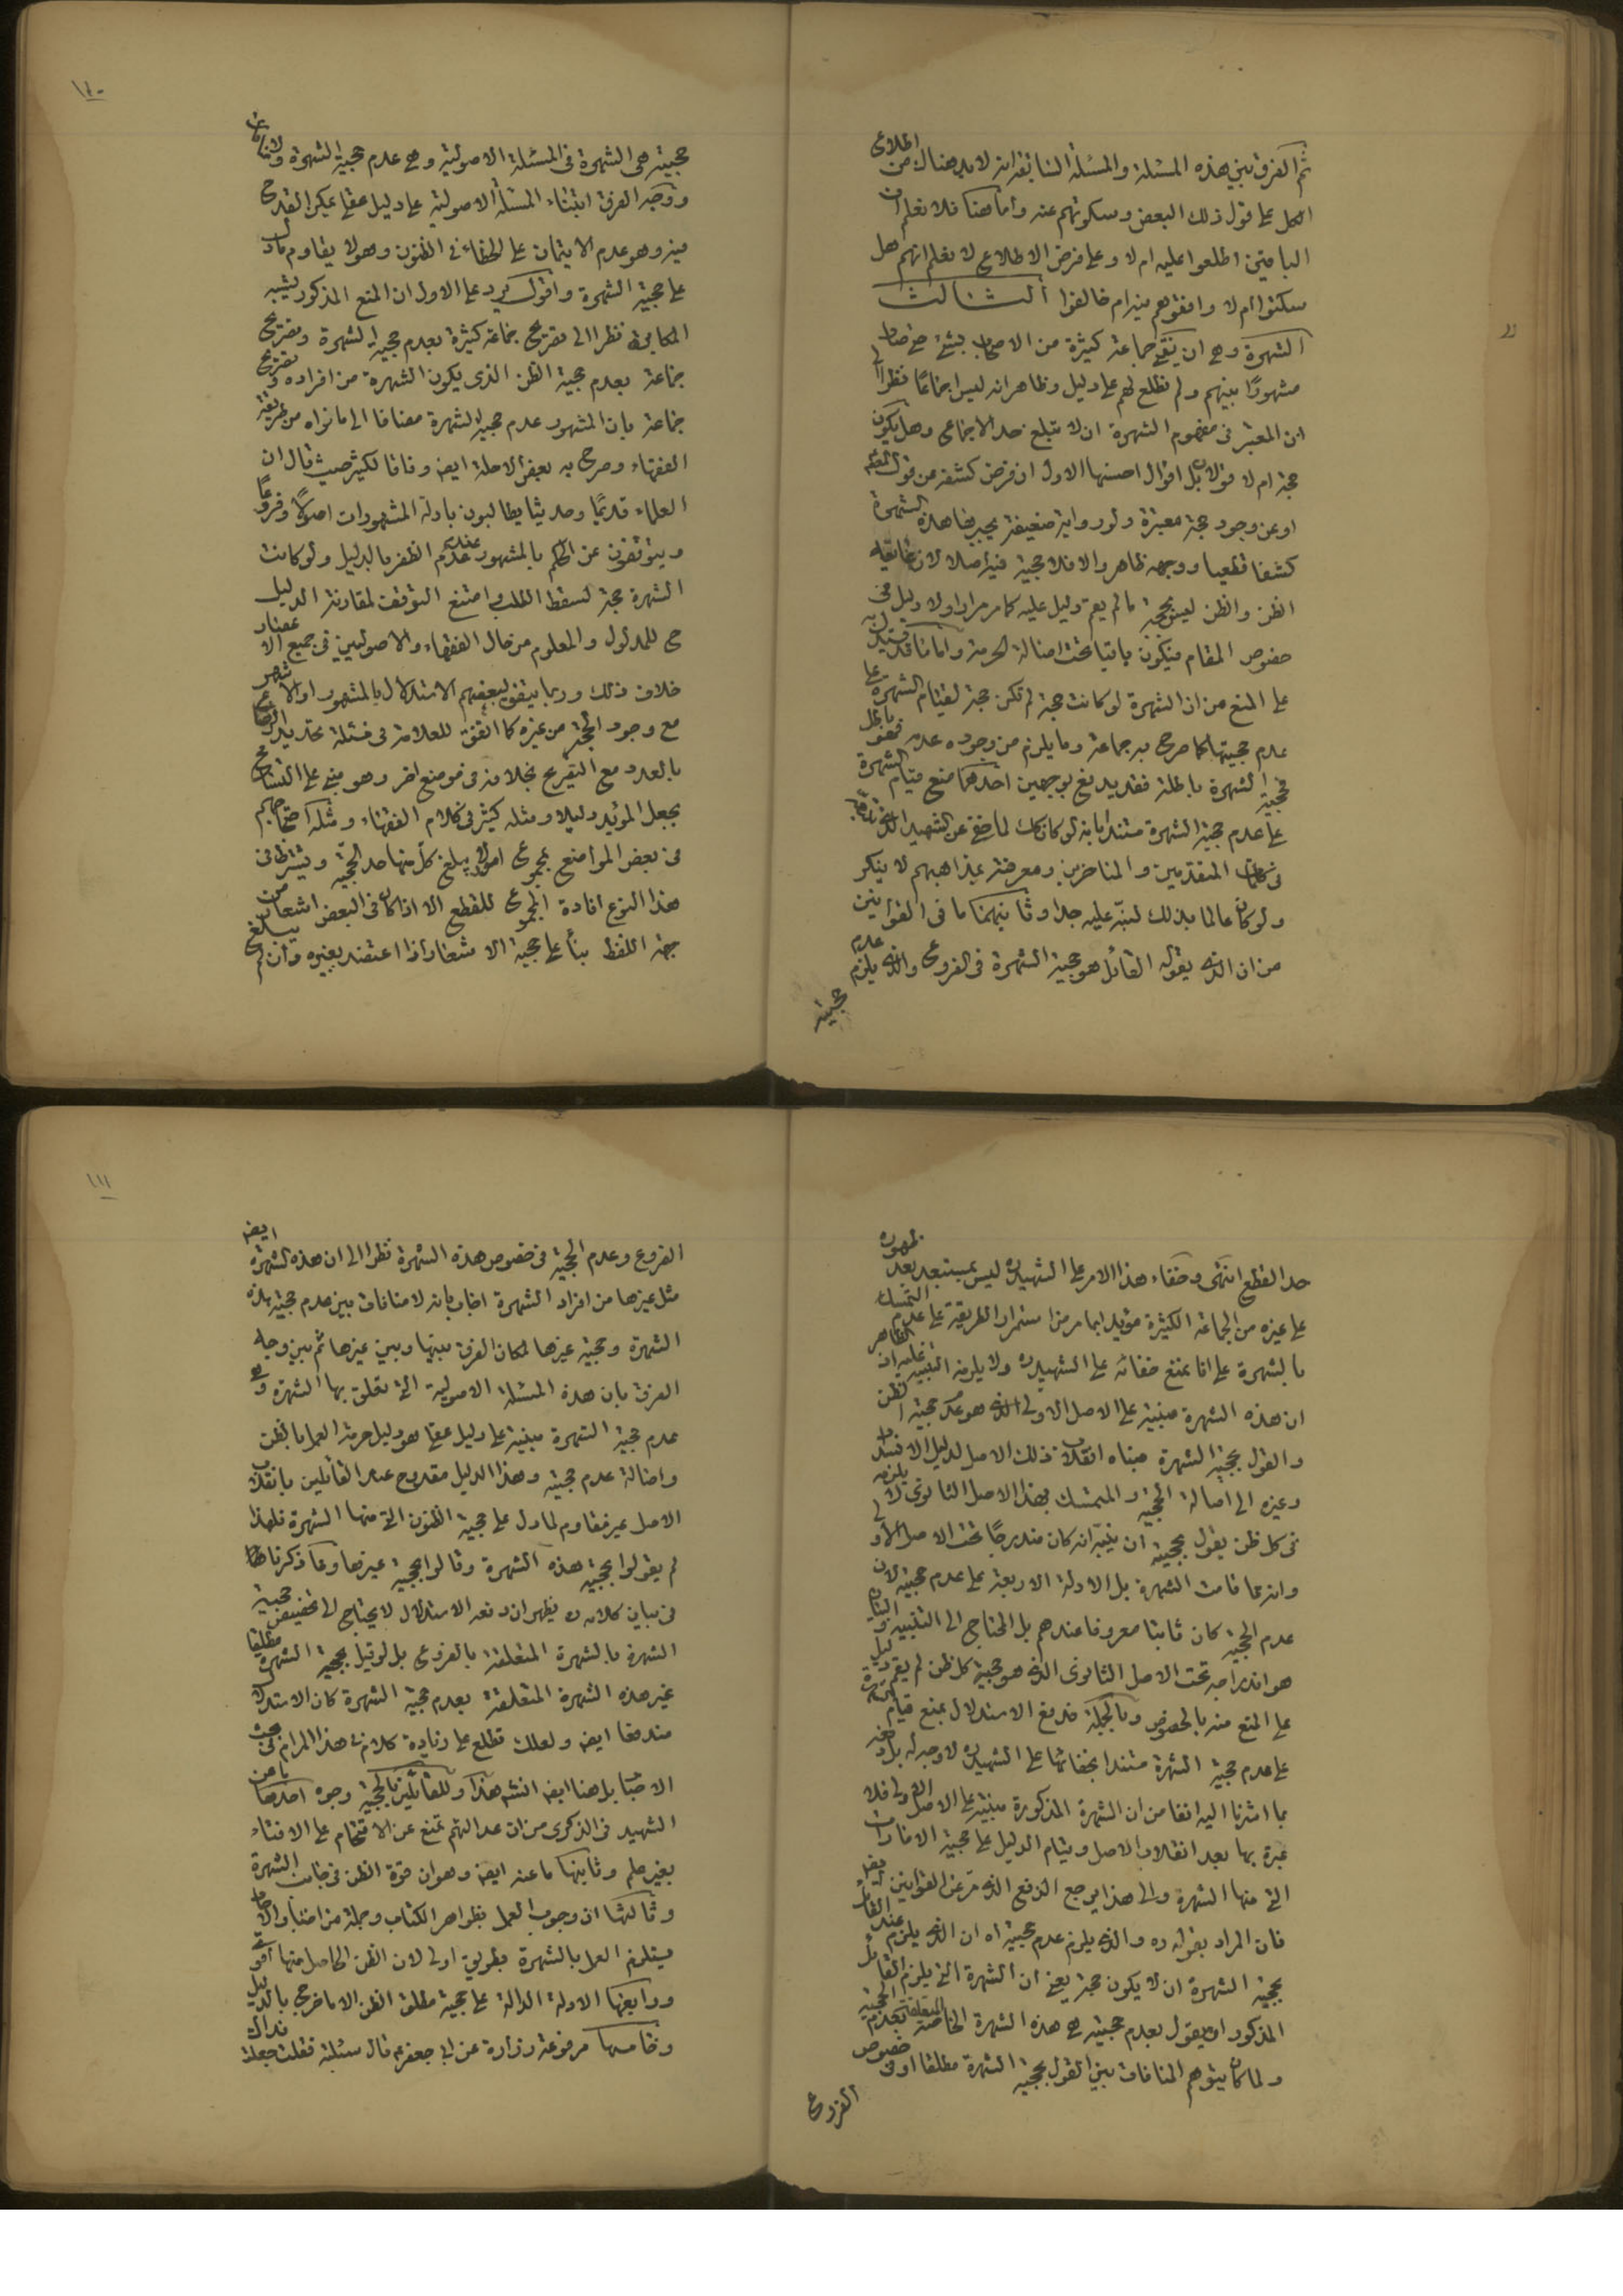 ثم الفرق بين هذه المسئلة والمسئلة السابقة انه لابد هناك من اطلاع
الكل على قول ذلك البعض وسكوتهم عنه واما هنا فلا نعلم ان
الباقين اطلعوا عليه ام لا وعلى فرض الاطلاع لا نعلم انهم هل
سكتوا ام لا وافقوهم فيه ام خالفوا الثالث
الشهرة وهي ان يفتى جماعة كثيرة من الاصحاب بشئ حتى صار
مشهورًا بينهم ولم نطلع لهم على دليل وظاهر انه ليس اجماعًا نظرا الى
ان المعتبر فى مفهوم الشهرة ان لا تبلغ حد الاجماع وهل يكون
حجة ام لا قولان بل اقوال احسنها الاول ان فرض كشفه من قول المعصوم
او عن وجود حجة معتبرة ولو رواية ضعيفة ينجبر بها هذه الشهرة
كشفا قطعيا ووجهه ظاهر والا فلا حجية فيه اصلا لان غايته
الظن والظن ليس بحجة ما لم يقم دليل عليه كما مر مرارا ولا دليل فى
خصوص المقام فيكون باقيا تحت اصالة الحرمة واما ما قد يستدل به
على المنع من ان الشهرة لو كانت حجة لم تكن حجة لقيام الشهرة على
عدم حجيتها كما صرح به جماعة وما يلزم من وجوده عدمه فهو باطل
فحجية الشهرة باطلة فقد يدفع بوجهين احدهما منع قيام الشهرة
على عدم حجية الشهرة مستندا بانه لو كان كك لما خفى عن الشهيد
فى كلمات المتقدمين والمتاخرين ومعرفته بمذاهبهم لا ينكر
ولو كان عالما بذلك لنبه عليه جدا وثانيهما ما فى القوانين
من ان الذى يقوله القائل هو حجية الشهرة فى الفروع والذى يلزم عدم
حجيته
١١٠
حجيته هى الشهرة فى المسئلة الاصولية وهى عدم حجية الشهرة ولا منافات
ووجه الفرق ابتناء المسئلة الاصولية على دليل عقلى يمكن القدح
فيه وهو عدم الايتمان على الخطاء فى الظنون وهو لا يقاوم ما دل
على حجية الشهرة واقول يرد على الاول ان المنع المذكور يشبه
المكابرة نظرا الى تصريح جماعة كثيرة بعدم حجية الشهرة وتصريح
جماعة بعدم حجية الظن الذى يكون الشهرة من افراده وتصريح
جماعة بان المشهور عدم حجية الشهرة مضافا الى ما نراه من طريقة
الفقهاء وصرح به بعض الاجلة ايضا وفاقا لكثير حيث قال ان
العلماء قديمًا وحديثا يطالبون بادلة المشهورات اصولًا وفروعًا
ويتوقفون عن الحكم بالمشهور عند عدم الظفر بالدليل ولو كانت
الشهرة حجة لسقط الطلب وامتنع التوقف لمقارنة الدليل
ح للمدلول والمعلوم من حال الفقهاء والاصوليين فى جميع الاعصار
خلاف ذلك وربما يتفق لبعضهم الاستدلال بالمشهور او الاشهر
مع وجود الحجة من غيره كما اتفق للعلامة فى مسئلة تحديد الرضاع
بالعدد مع التصريح بخلافه فى موضع اخر وهو مبنى على التسامح
بجعل المؤيد دليلا ومثله كثير فى كلام الفقهاء ومثله احتجاجهم
فى بعض المواضع بمجموع امور لا يبلغ كل منها حد الحجية ويشترط فى
هذا النوع افادة المجموع للقطع الا اذا كان فى البعض اشعار من
جهة اللفظ بناء على حجية الاشعار اذا اعتضد بغيره وان لم يبلغ
حد القطع انتهى وخفاء هذا الامر على الشهيد ره ليس بمستبعد بعد ظهوره
على غيره من الجماعة الكثيرة مؤيدا بما مر من استمرار الطريقة على عدم التمسك
بالشهرة على انا نمنع خفائه على الشهيد ره ولا يلزمه التنبيه عليه ان الظاهر
ان هذه الشهرة مبنية على الاصل الاولى الذى هو عدم حجية الظن
والقول بحجية الشهرة مبناه انقلاب ذلك الاصل لدليل الانسداد
وغيره الى اصالة الحجية والمتمسك بهذا الاصل الثانوى لا يلزمه
فى كل ظن يقول بحجيته ان ينبه انه كان مندرجًا تحت الاصل الاولى
وانه مما قامت الشهرة بل الادلة الاربعة على عدم حجيته لان
عدم الحجية كان ثابتا معروفا عندهم بل المحتاج الى التنبيه والبيان
هو اندراجه تحت الاصل الثانوى الذى هو حجية كل ظن لم يقم دليل
على المنع منه بالخصوص وبالجملة فدفع الاستدلال بمنع قيام الشهرة
على عدم حجية الشهرة مستندا بخفائها على الشهيد ره لا وجه له بل دفعه
بما اشرنا اليه انفا من ان الشهرة المذكورة مبنية على الاصل الاولى فلا
عبرة بها بعد انقلاب الاصل وقيام الدليل على حجية الامارات
التى منها الشهرة والى هذا يرجع الدفع الذى مر عن القوانين ايضا
فان المراد بقوله ره والذى يلزم عدم حجيته اه ان الذى يلزم عند القائل
بحجية الشهرة ان لا يكون حجة يعنى ان الشهرة التى يلزم القائل
المذكور ان يقول بعدم حجيته هى هذه الشهرة الخاصة المتعلقة بعدم الحجية
ولما كان يتوهم المنافات بين القول بحجية الشهرة مطلقا او فى خصوص
الفروع
١١١
الفروع وعدم الحجية فى خصوص هذه الشهرة نظرا الى ان هذه الشهرة ايضا
مثل غيرها من افراد الشهرة اجاب بانه لا منافات بين عدم حجية هذه
الشهرة وحجية غيرها لمكان الفرق بينها وبين غيرها ثم بين وجه
الفرق بان هذه المسئلة الاصولية التى تعلق بها الشهرة وهى
عدم حجية الشهرة مبنية على دليل عقلى هو دليل حرمة العمل بالظن
واصالة عدم حجيته وهذا الدليل مقدوح عند القائلين بانقلاب
الاصل غير مقاوم لما دل على حجية الظنون التى منها الشهرة فلهذا
لم يقولوا بحجية هذه الشهرة وقالوا بحجية غيرها ومما ذكرنا
فى بيان كلامه ره يظهر ان دفعه الاستدلال لا يحتاج الى تخصيص حجية
الشهرة بالشهرة المتعلقة بالفروع بل لو قيل بحجية الشهرة مطلقا
غير هذه الشهرة المتعلقة بعدم حجية الشهرة كان الاستدلال
مندفعا ايضا ولعلك تطلع على زيادة كلام فى هذا المرام فى بحث
الاخبار بل هنا ايضا انش هذا وللقائلين بالحجية وجوه احدها ما عن
الشهيد فى الذكرى من ان عدالتهم تمنع عن الاقتحام على الافتاء
بغير علم وثانيها ما عنه ايضا وهو ان قوة الظن فى جانب الشهرة
وثالثها ان وجوب العمل بظواهر الكتاب وجملة من اخبار الاحاد
يستلزم العمل بالشهرة بطريق اولى لان الظن الحاصل منها اقوى
ورابعها الادلة الدالة على حجية مطلق الظن الا ما خرج بالدليل
وخامسها مرفوعة زرارة عن ابى جعفر ع قال سئلته فقلت جعلت فداك